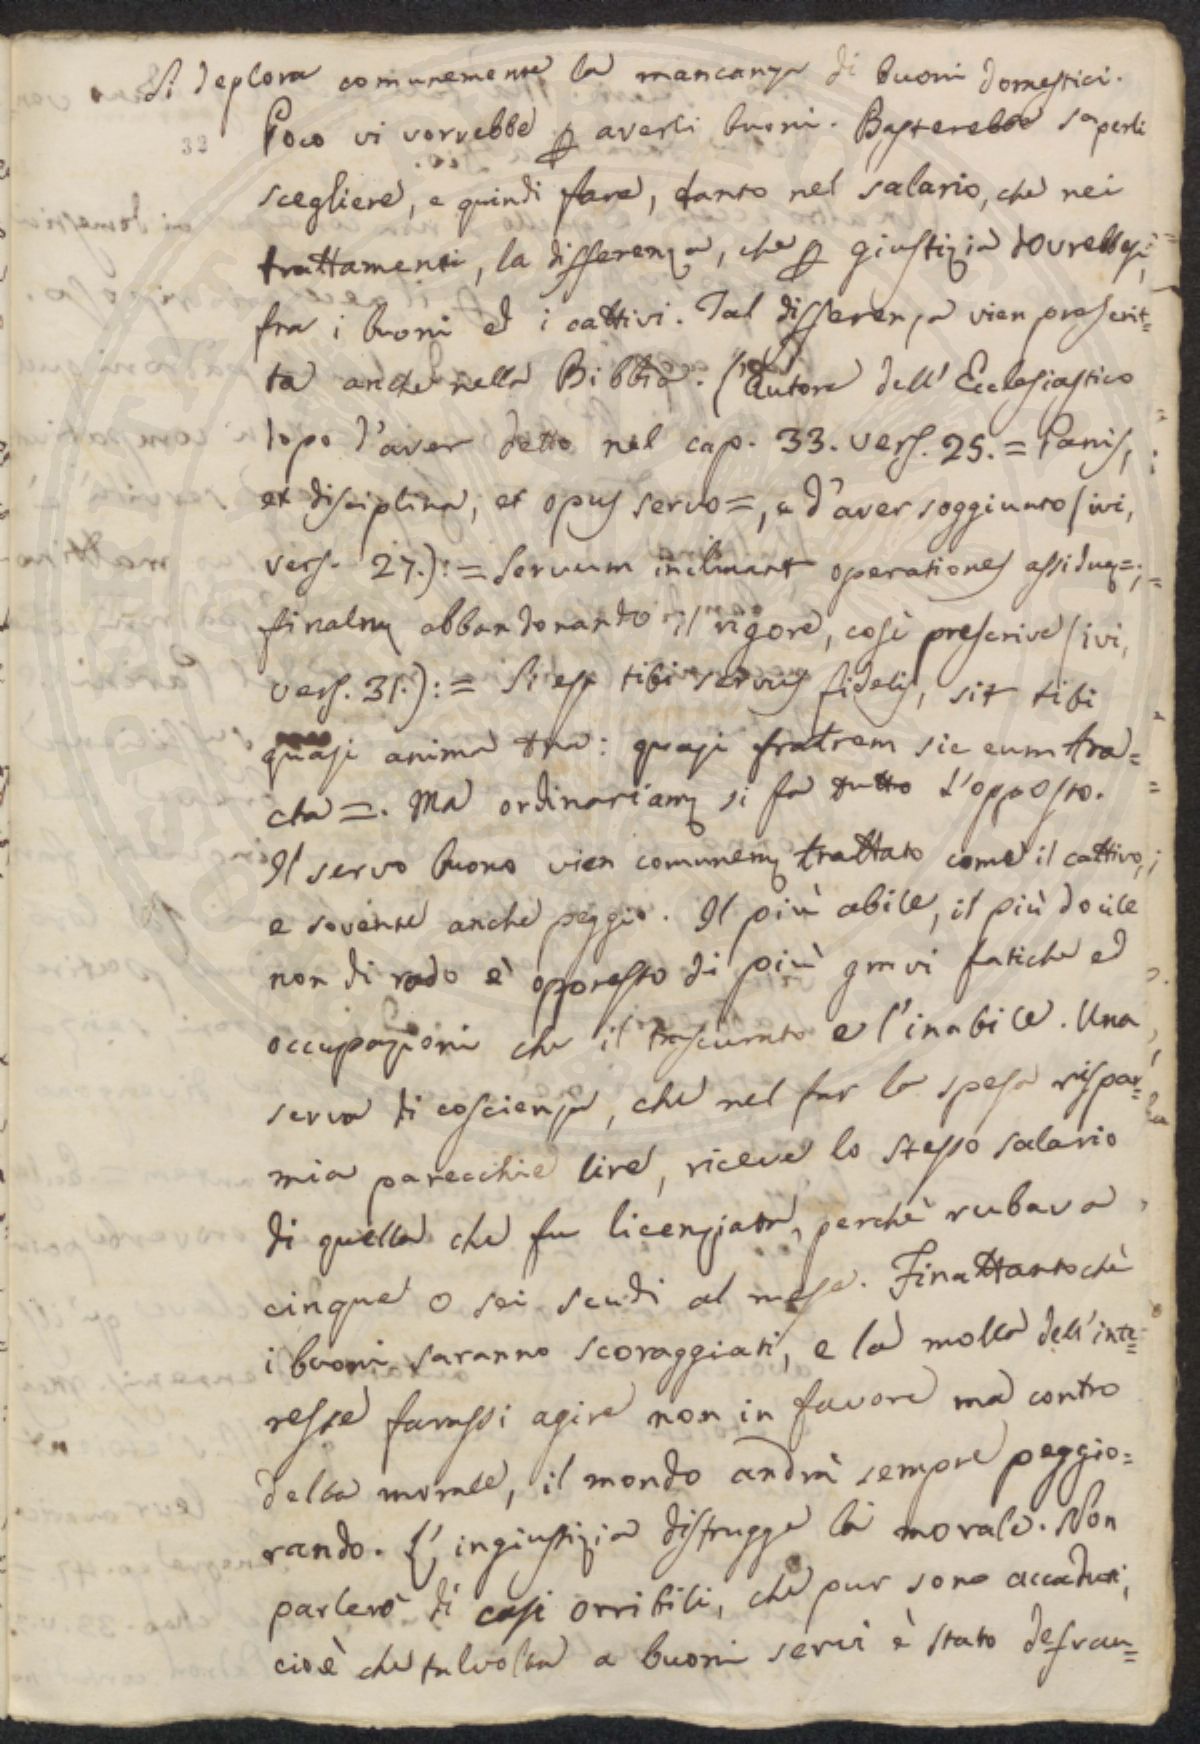 Si deplora comunemente la mancanza di buoni domestici.
Poco vi vorrebbe p averli buoni. Basterebbe saperli
32
scegliere, e quindi fare, tanto nel salario, che nei
trattamenti, la differenza, che p giustizia dovrebbesi,
fra i buoni ed i cattivi. Tal differenza vien prescrit=
ta anche nella Bibbia. L'Autore dell' Ecclesiastico
dopo d'aver detto nel cap. 33. vers. 25. = Panis,
et disciplina, et opus servo =, e d'aver soggiunto (ivi,
vers. 27.): = Servum inclinant operationes assiduæ =;
finalm abbandonando il rigore, così prescrive (ivi,
vers. 31.): = Si est tibi servus fidelis, sit tibi
quasi anima tua: quasi fratrem sic eum tra=
cta =. Ma ordinariam si fa tutto l'opposto.
Il servo buono vien comunem trattato come il cattivo,
e sovente anche peggio. Il più abile, il più docile
non di rado è oppresso di più gravi fatiche ed
occupazioni che il trascurato e l'inabile. Una
serva di coscienza, che nel far la spesa rispar=
mia parecchie lire, riceve lo stesso salario
di quella che fu licenziata, perchè rubava
cinque o sei scudi al mese. Finattantochè
i buoni saranno scoraggiati, e la molla dell'inte=
resse farassi agire non in favore ma contro
della morale, il mondo andrà sempre peggio=
rando. L'ingiustizia distrugge la morale. Non
parlerò di casi orribili, che pur sono accaduti,
cioè che talvolta a buoni servi è stato defrau=